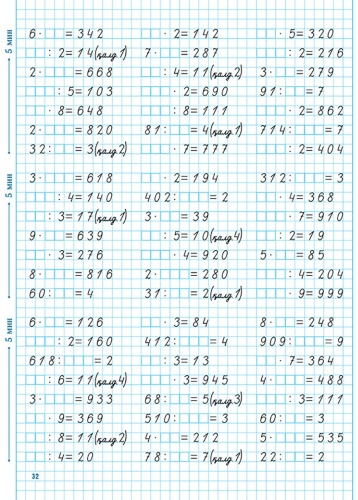 5 мин
6 · □□ = 342 □□ · 2 = 142 □□ · 5 = 320
□□ : 2 = 14 (қалд.1) 7 · □□ = 287 □□□ : 2 = 216
2 · □□□ = 668 □□ : 4 = 11 (қалд.2) 3 · □□ = 279
□□□ : 5 = 103 □□□ · 2 = 690 91 : □□ = 7
□□ · 8 = 648 □□□ : 8 = 111 □□□ · 2 = 862
2 · □□□ = 820 81 : □□ = 4 (қалд.1) 714 : □□□ = 7
32 : □□ = 3 (қалд.2) □□□ · 7 = 777 □□□ : 2 = 404
5 мин
3 · □□□ = 618 □□ · 2 = 194 312 : □□□ = 3
□□□ : 4 = 140 402 : □□□ = 2 □□ · 4 = 368
□□ : 3 = 17 (қалд.1) 3 · □□ = 39 □□□ · 7 = 910
9 · □□ = 639 □□ : 5 = 10 (қалд.4) □□ : 2 = 19
□□ · 3 = 276 □□□ · 4 = 920 5 · □□ = 85
8 · □□□ = 816 2 · □□□ = 280 □□□ : 4 = 204
60 : □□ = 4 31 : □□ = 2 (қалд.1) □□□ · 9 = 999
5 мин
6 · □□ = 126 □□ · 3 = 84 8 · □□ = 248
□□□ : 2 = 160 412 : □□□ = 4 909 : □□□ = 9
618 : □□□ = 2 □□ : 3 = 13 □□ · 7 = 364
□□ : 6 = 11 (қалд.4) □□□ · 3 = 945 4 · □□□ = 488
3 · □□□ = 933 68 : □□ = 5 (қалд.3) □□□ : 3 = 111
□□ · 9 = 369 510 : □□□ = 3 60 : □□ = 3
□□ : 8 = 11 (қалд.2) 4 · □□ = 212 5 · □□□ = 535
□□ : 4 = 20 78 : □□ = 7 (қалд.1) 22 : □□ = 2
32